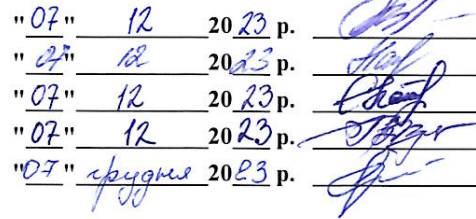 "07" 12 2023 р.
"07" 12 2023 р.
"07" 12 2023 р.
"07" 12 2023 р.
"07" грудня 2023 р.